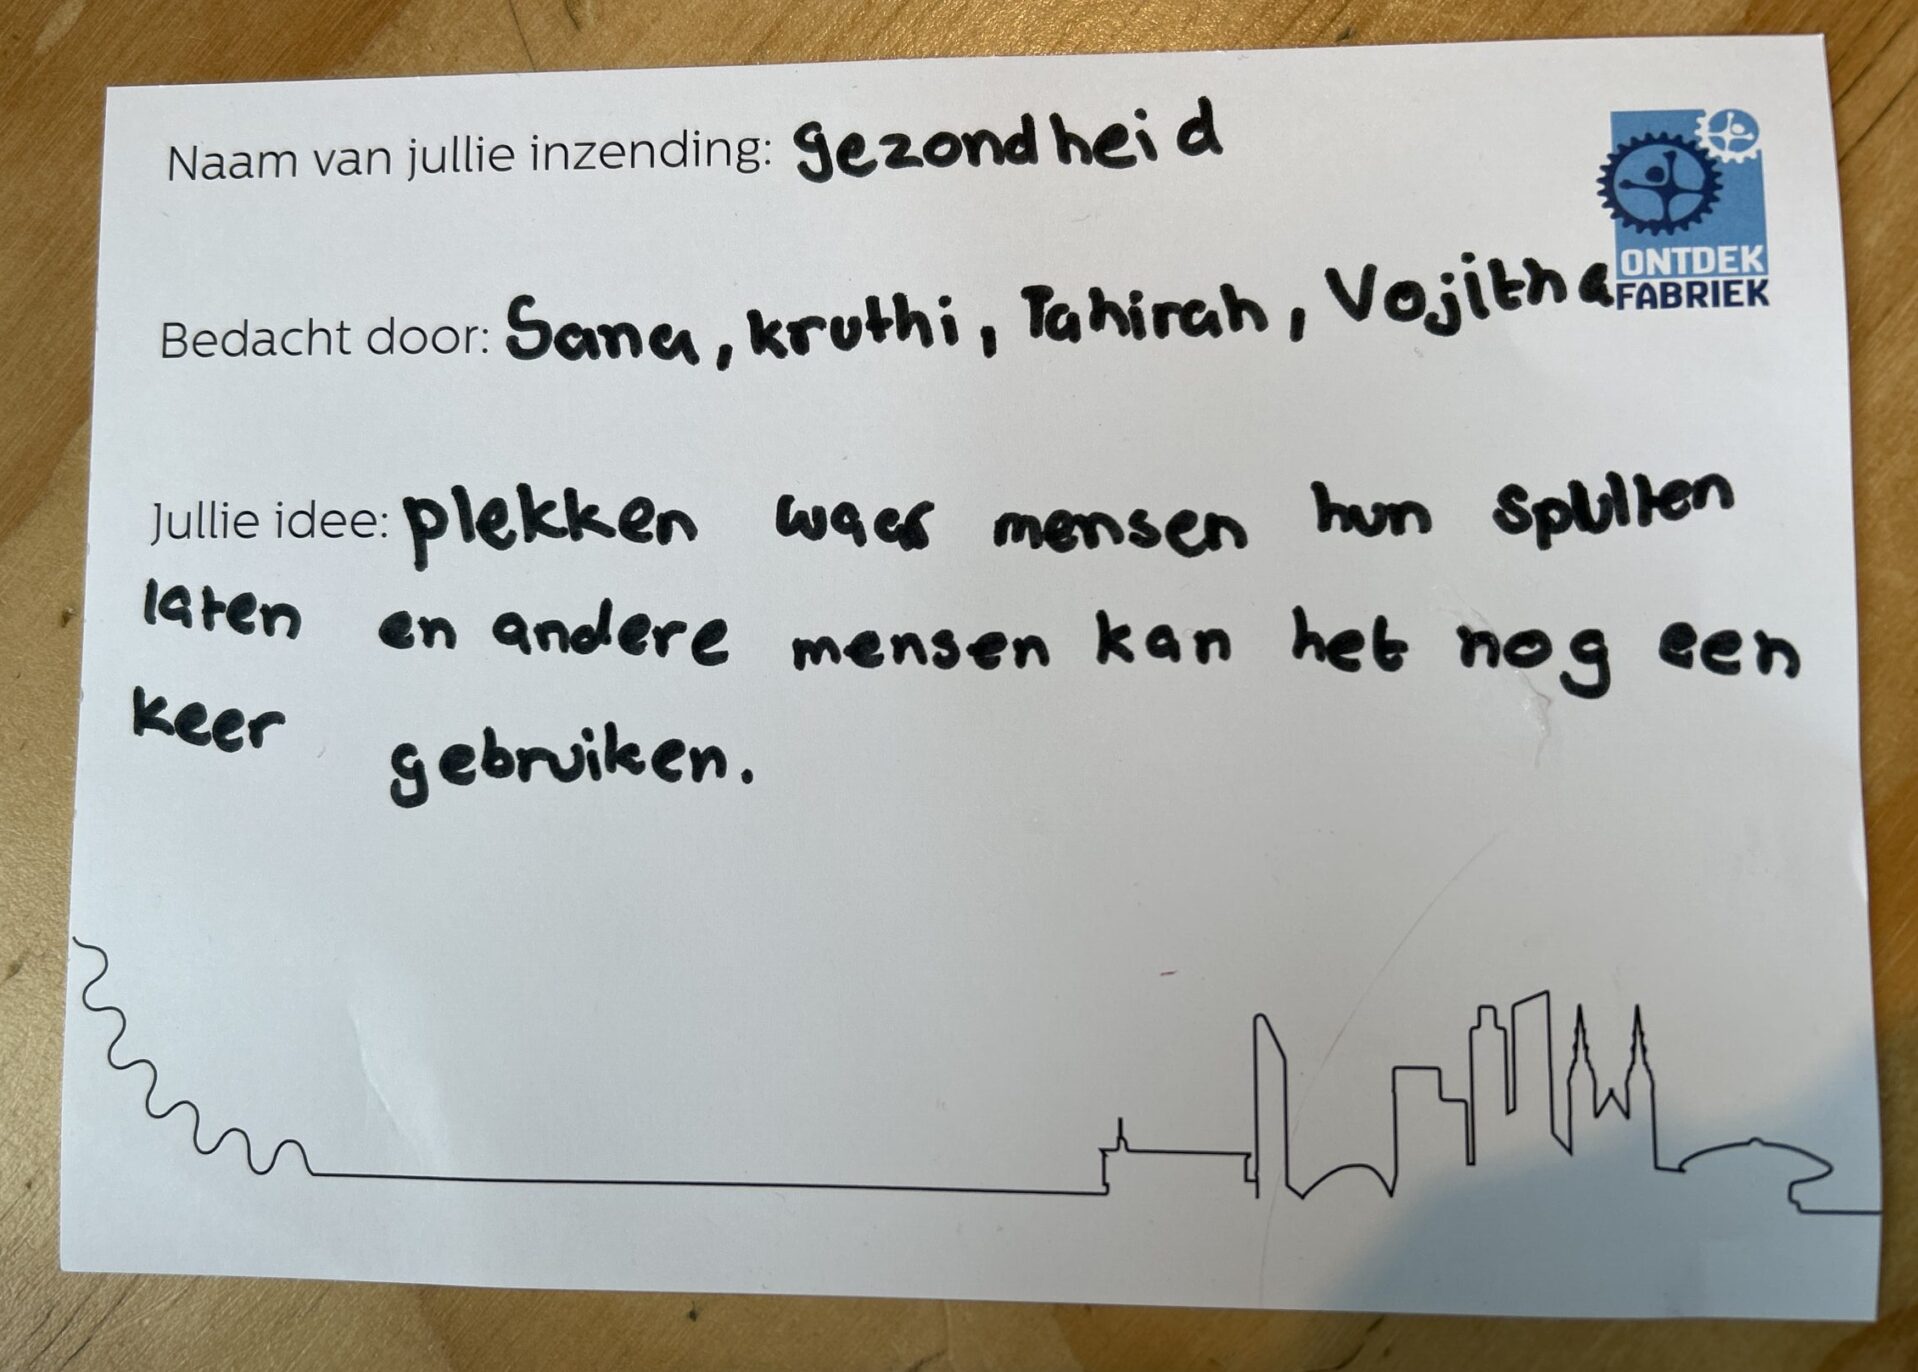 Naam van jullie inzending: gezondheid
ONTDEK
FABRIEK
Bedacht door: Sana, kruthi, Tahirah, Vojitha
Jullie idee: plekken waar mensen hun spullen
laten en andere mensen kan het nog een
keer gebruiken.